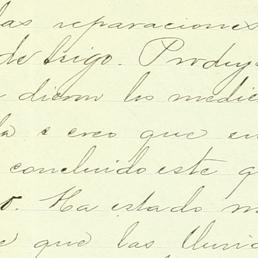 las reparaciones
de trigo. Produj
dieron los medi
la e creo que en
concluido este q
o. Ha estado m
e que las lluvi